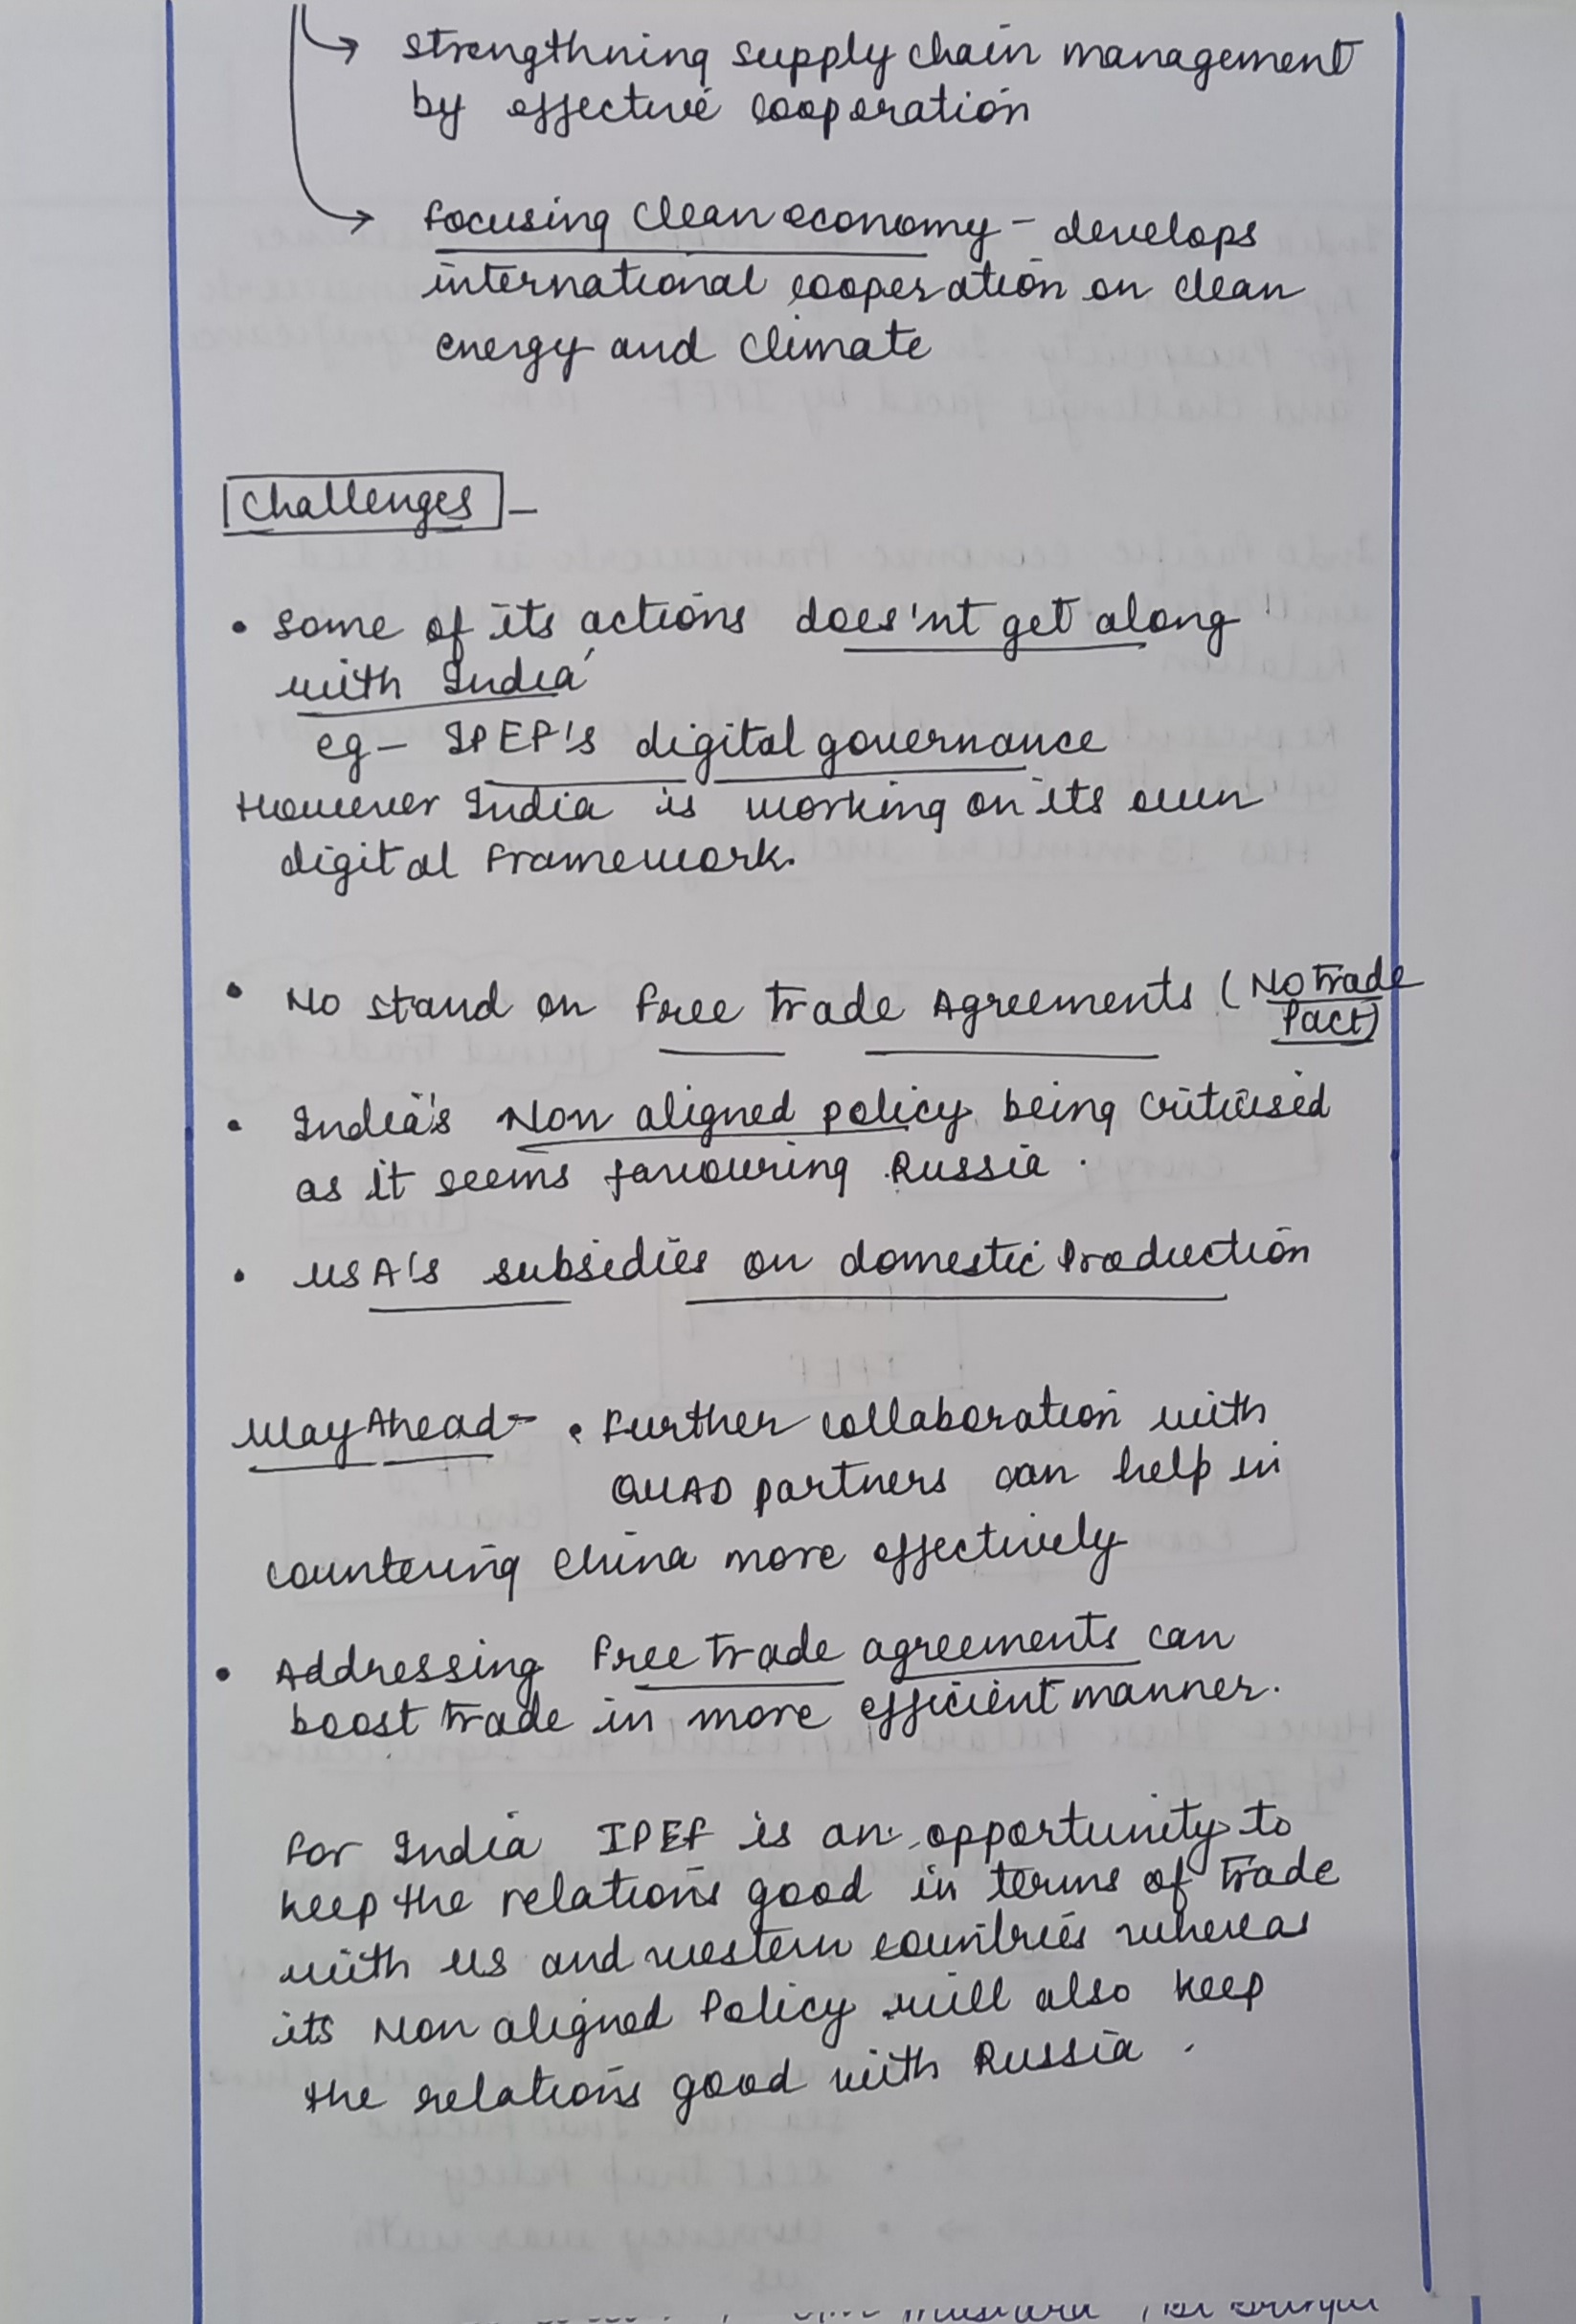 strengthning supply chain management
by effective cooperation
focusing clean economy - develops
international cooperation on clean
energy and climate
Challenges -
• Some of its actions does'nt get along
with India
eg - IPEF's digital governance
However India is working on its own
digital framework.
• No stand on free trade Agreements (No trade
Pact)
• India's Non aligned policy being criticised
as it seems favouring Russia.
• USA's subsidies on domestic production
Way Ahead - • further collaboration with
QUAD partners can help in
countering China more effectively
• Addressing free trade agreements can
boost trade in more efficient manner.
for India IPEF is an opportunity to
keep the relations good in terms of trade
with US and western countries whereas
its Non aligned Policy will also keep
the relations good with Russia.